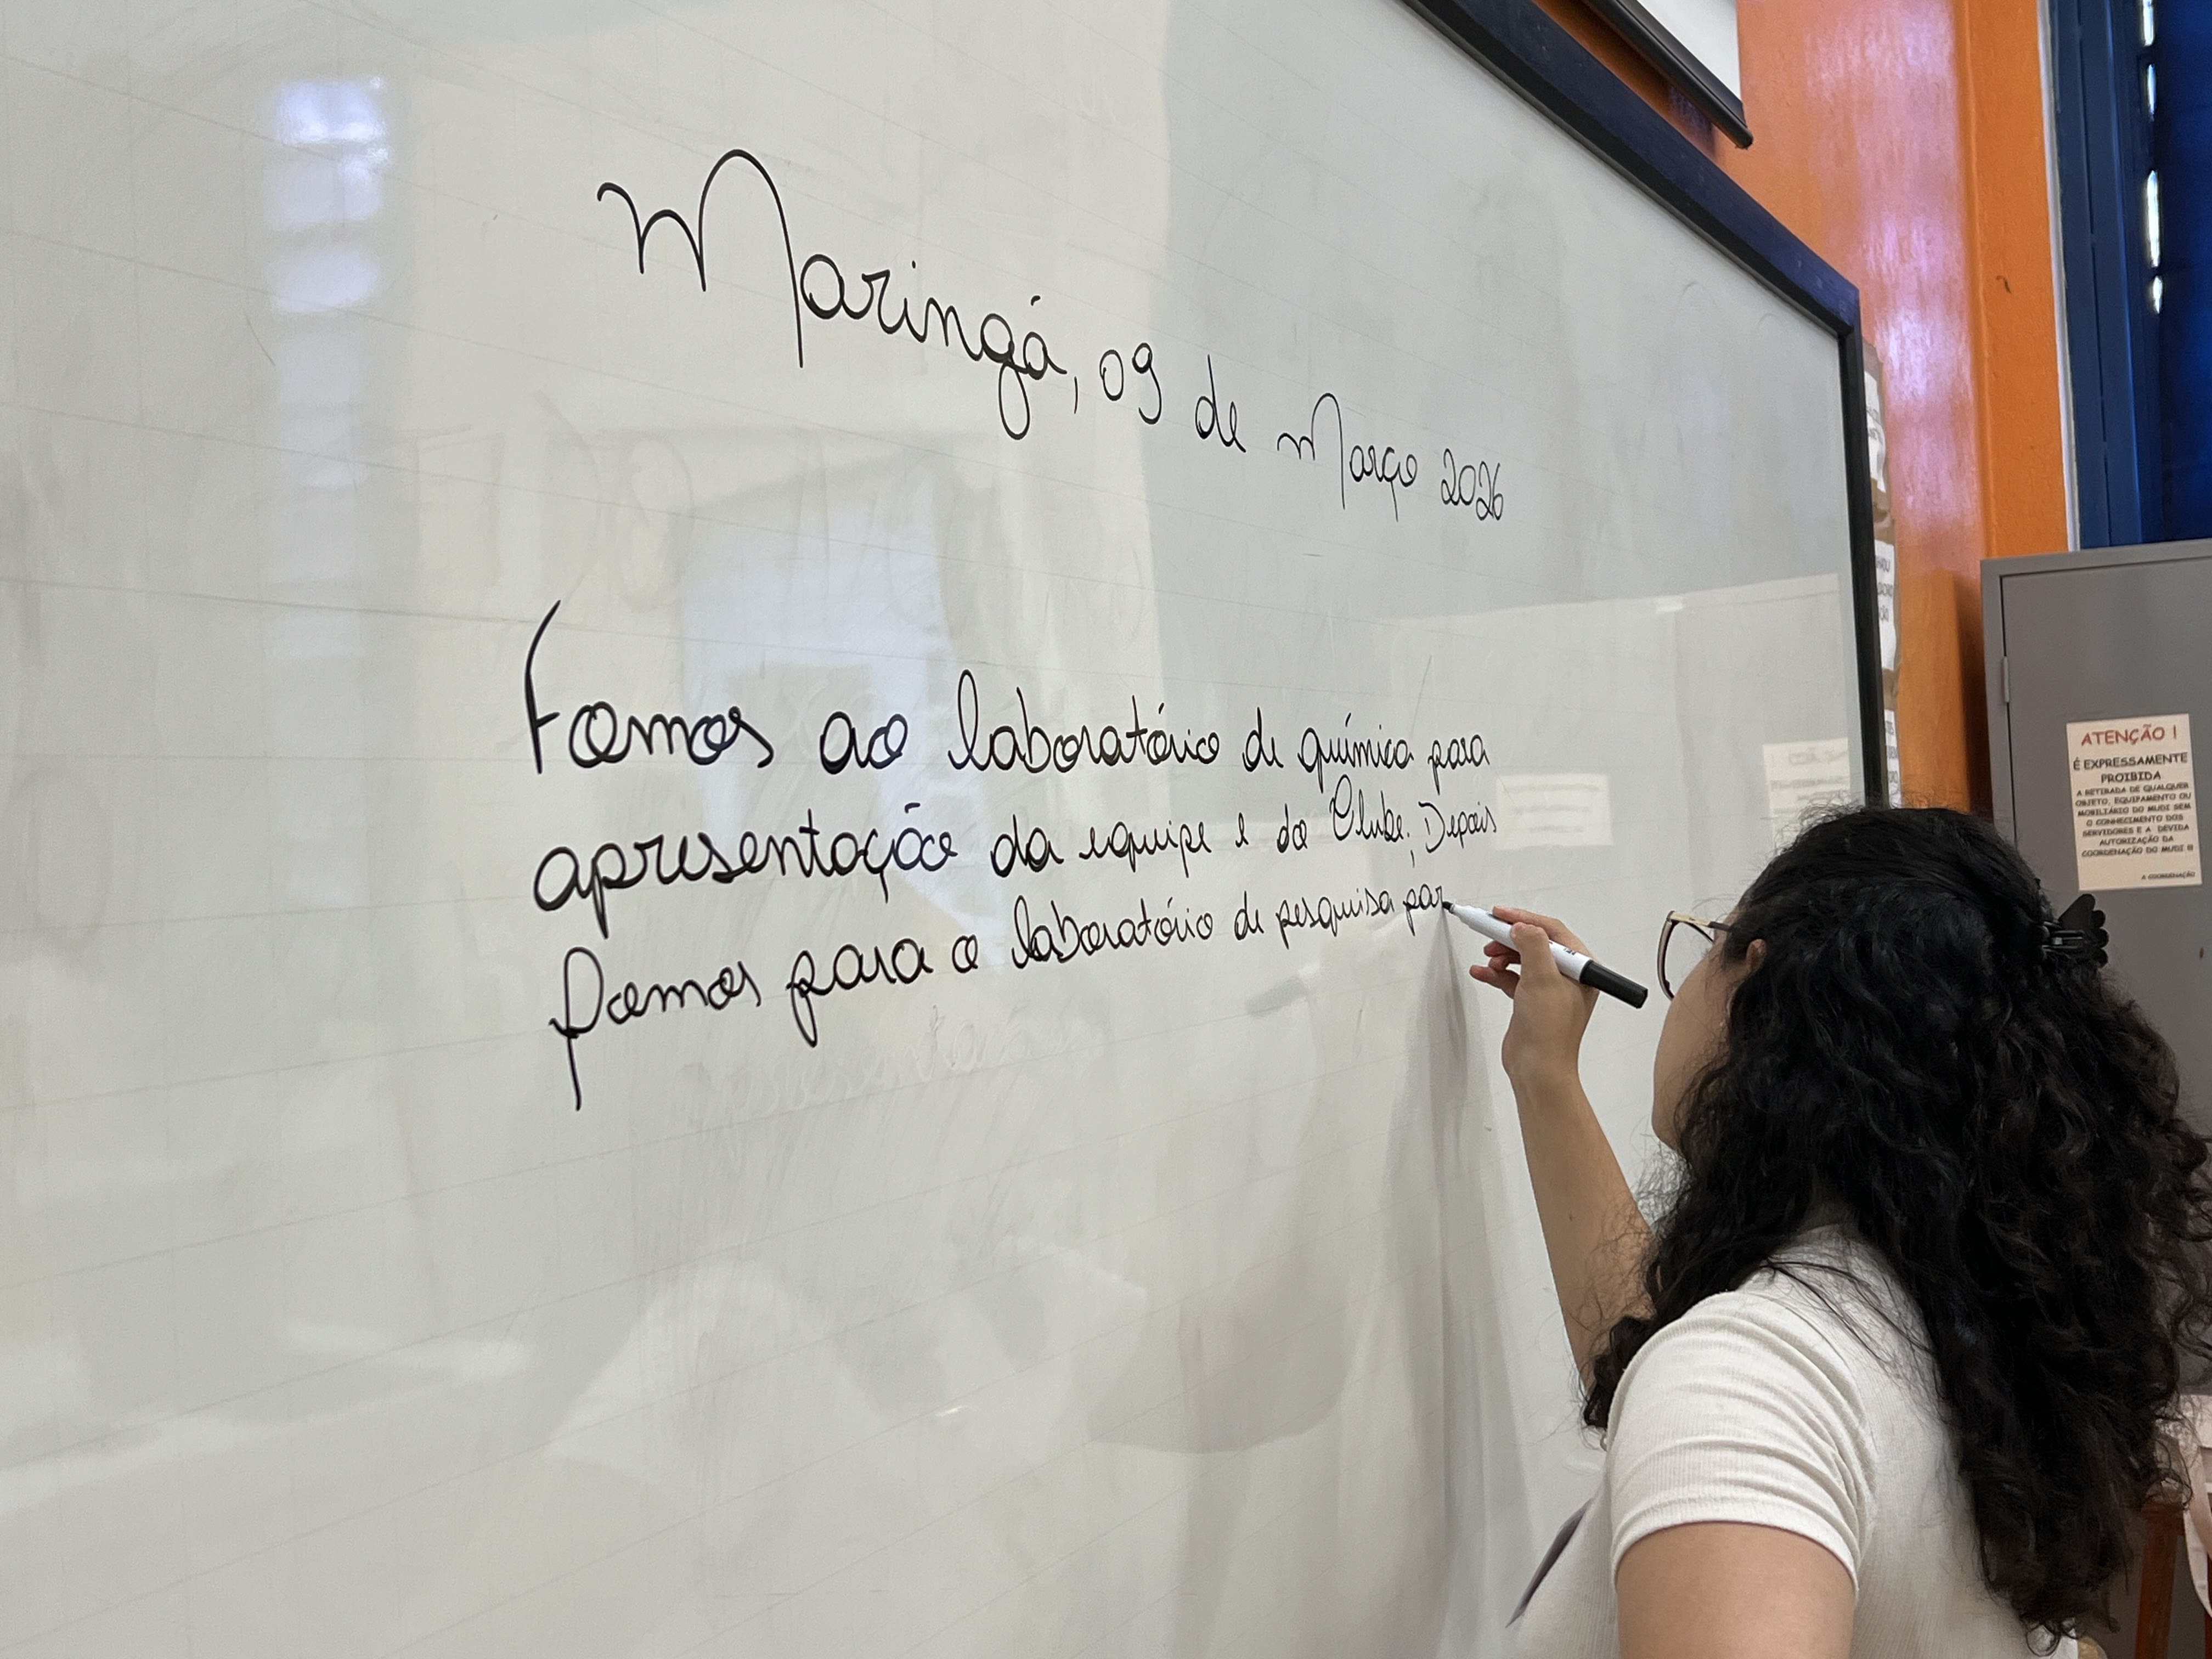 Maringá, 09 de Março 2026
Fomos ao laboratório de química para
apresentação da equipe e do Clube. Depois
Fomos para o laboratório de pesquisa par
ATENÇÃO !
É EXPRESSAMENTE
PROIBIDA
A RETIRADA DE QUALQUER
OBJETO, EQUIPAMENTO OU
MOBILIÁRIO DO MUDI SEM
O CONHECIMENTO DOS
SERVIDORES E A DEVIDA
AUTORIZAÇÃO DA
COORDENAÇÃO DO MUDI !!!
A COORDENAÇÃO